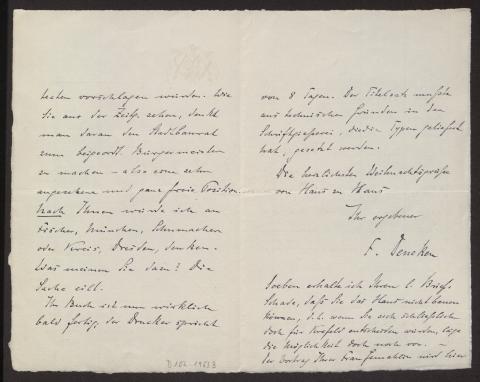 testen vorschlagen würden. Wie
Sie aus der Zeitg. sehen, denkt
man daran den Stadtbaurat
zum beigeordt. Bürgermeister
zu machen – also eine sehr
angesehene und ganz freie Position.
Nach Ihnen würde ich an
Fischer, München, Schumacher
oder Kreis, Dresden, denken.
Was meinen Sie dazu? Die
Sache eilt.
Ihr Buch ist nun wirklich
bald fertig, der Drucker spricht
von 8 Tagen. Der Titelsatz mußte
aus technischen Gründen in der
Schriftgiesserei, die die Typen geliefert
hat, gesetzt werden.
Die herzlichsten Weihnachtsgrüsse
von Haus zu Haus
Ihr ergebener
F. Deneken
Soeben erhalte ich Ihren l. Brief.
Schade, daß Sie das Haus nicht bauen
können, d.h. wenn Sie sich schliesslich
doch für Krefeld entscheiden würden, läge
die Möglichkeit doch noch vor. –
Der Vortrag Ihrer Frau Gemahlin wird hier